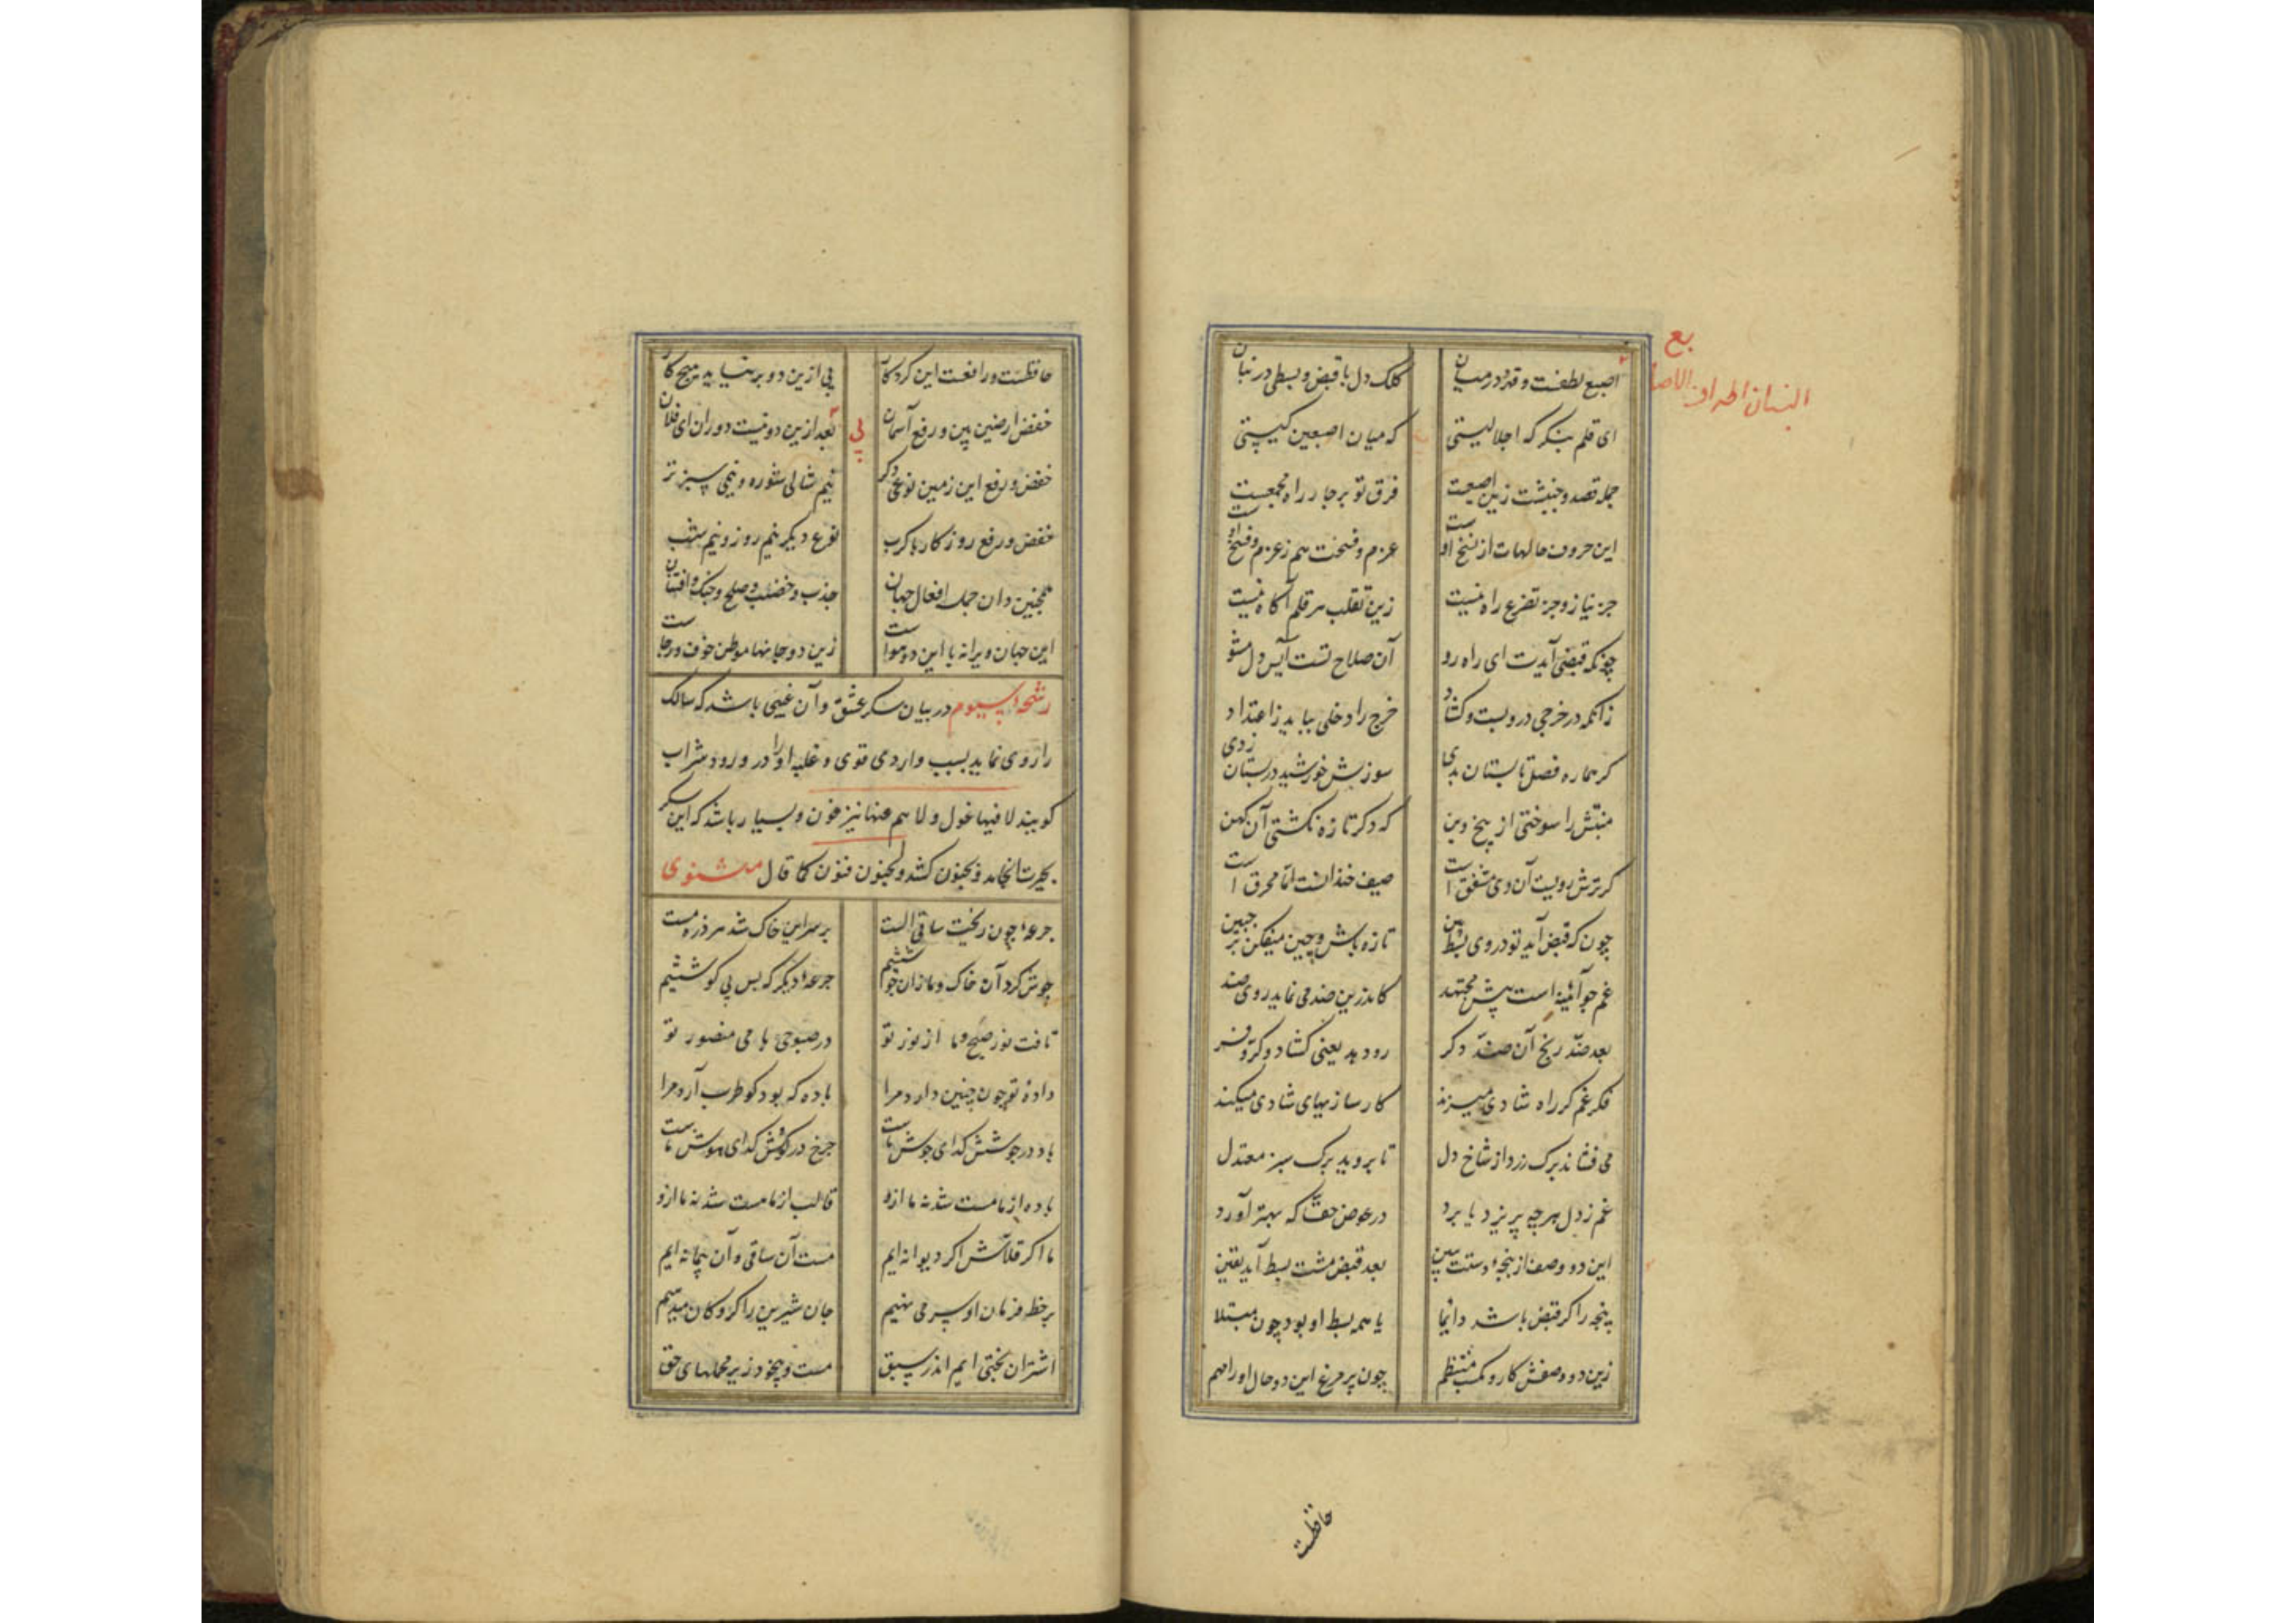 اصبع لطفست و قهر و در میان کلک دل با قبض و بسطی در بنان
ای قلم بنگر که اجلالیستی که میان اصبعین کیستی
جمله قصد و جنبشت زین اصبعست فرق تو بر چار راه مجمعست
این حروف حالهات از نسخ اوست عزم و فسخت هم ز عزم و فسخ اوست
جز نیاز و جز تضرع راه نیست زین تقلب هر قلم آگاه نیست
چونکه قبضی آیدت ای راه رو آن صلاح تست آیس دل مشو
زانکه در خرجی در و بست و کشاد خرج را دخلی بباید زاعتداد
گر هماره فصل تابستان بدی سوزش خورشید در بستان زدی
منبتش را سوختی از بیخ و بن که دگر تازه نگشتی آن کهن
گر ترش رویست آن دی مشفق است صیف خندانست اما محرق است
چون که قبض آید تو در وی بسط بین تازه باش و چین میفکن بر جبین
غم چو آئینه است پیش مجتهد کاندرین ضد می نماید روی ضد
بعد ضد رنج آن ضد دگر رو دهد یعنی گشاد و کر و فر
فکر غم گر راه شادی میزند کارسازیهای شادی میکند
می فشاند برگ زرد از شاخ دل تا بروید برگ سبز معتدل
غم ز دل هر چه بریزد یا برد در عوض حقا که بهتر آورد
این دو وصف از پنجه دستت ببین بعد قبض مشت بسط آید یقین
پنجه را گر قبض باشد دائما یا همه بسط او بود چون مبتلا
زین دو وصفش کار و مکسب منتظم چون پر مرغ این دو حال او را مهم
حافظست
حافظست و رافعست این کردگار بی ازین دو بر نیاید هیچ کار
خفض ارضین بین و رفع آسمان بعد ازین دو نیست دوران ای فلان
بی
خفض و رفع این زمین نوعی دگر نیم سالی شوره و نیمی سبز تر
خفض و رفع روزگار با کرب نوع دیگر نیم روز و نیم شب
همچنین دان جمله افعال جهان جذب و خصب و صلح و جنگ و افتتان
این جهان ویرانه با این دو هواست زین دو جانها موطن خوف و رجاست
رشحه سیوم در بیان سکر عشق و آن غیبی باشد که سالک
را روی نماید بسبب واردی قوی و غلبه او را در ورود شراب
گویند لا فیها غول و لا هم عنها ینزفون و بسیار باشد که این سکر
بحیرت انجامد و بجنون کشد و للجنون فنون کما قال مثنوی
جرعه چون ریخت ساقی الست بر سر این خاک شد هر ذره مست
جوش کرد آن خاک و ما زان جوششیم جرعه دیگر که بس بی کوششیم
تافت نور صبح و ما از نور تو در صبوحی با می منصور تو
داده تو چون چنین دارد مرا باده که بود کو طرب آرد مرا
باده در جوشش گدای جوش ماست چرخ در گردش گدای هوش ماست
باده از ما مست شد نه ما ازو قالب از ما هست شد نه ما ازو
ما اگر قلاش اگر دیوانه ایم مست آن ساقی و آن پیمانه ایم
بر خط فرمان او سر می نهیم جان شیرین را گروگان میدهیم
اشتران بختی ایم اندر سبق مست و بیخود زیر محملهای حق